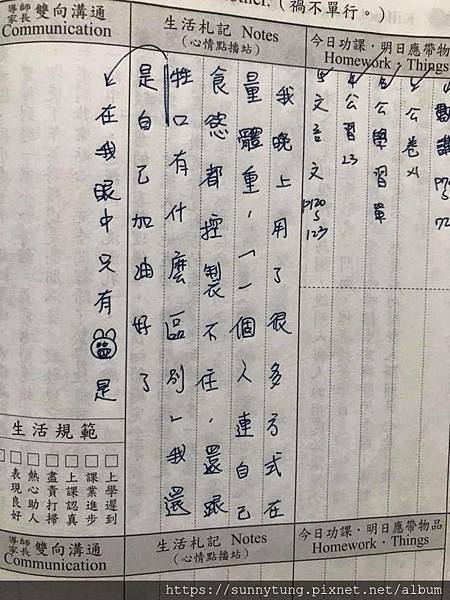 other.（禍不單行。）
今日功課・明日應帶物
Homework・Things
數講
公卷
公學習單
公習 23
文言文 P120
5
123
生活札記 Notes
(心情點播站)
我晚上用了很多方式在
量體重,「一個人連自己
食慾都控製不住,還跟
牲口有什麼區別」我還
是自己加油好了
導師家長 雙向溝通
Communication
在我眼中只有是
生活規範
上學遲到
課業進步
上課認真
盡責打掃
熱心助人
表現良好
今日功課・明日應帶物品
Homework・Things
生活札記 Notes
(心情點播站)
導師家長 雙向溝通
Communication
https://sunnytung.pixnet.net/album